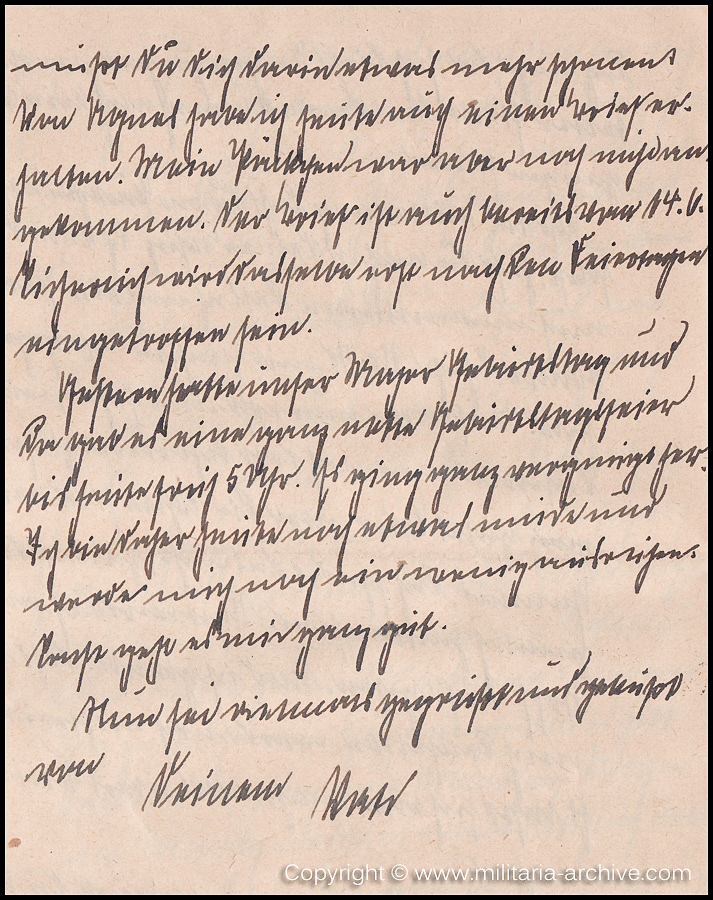 mußt Du Dich darin etwas mehr schonen.
Von Agnes habe ich heute auch einen Brief er-
halten. Mein Päckchen war aber noch nicht an-
gekommen. Der Brief ist auch bereits vom 14. 6.
Sicherlich wird dasselbe erst nach den Feiertagen
eingetroffen sein.
Gestern hatte unser Major Geburtstag und
da gab es eine ganz nette Geburtstagsfeier
bis heute früh 5 Uhr. Es ging ganz vergnügt her.
Ich bin daher heute noch etwas müde und
werde mich noch ein wenig ausruhen.
Sonst geht es mir ganz gut.
Nun sei vielmals gegrüßt und geküßt
von Deinem
Copyright © www.militaria-archive.com